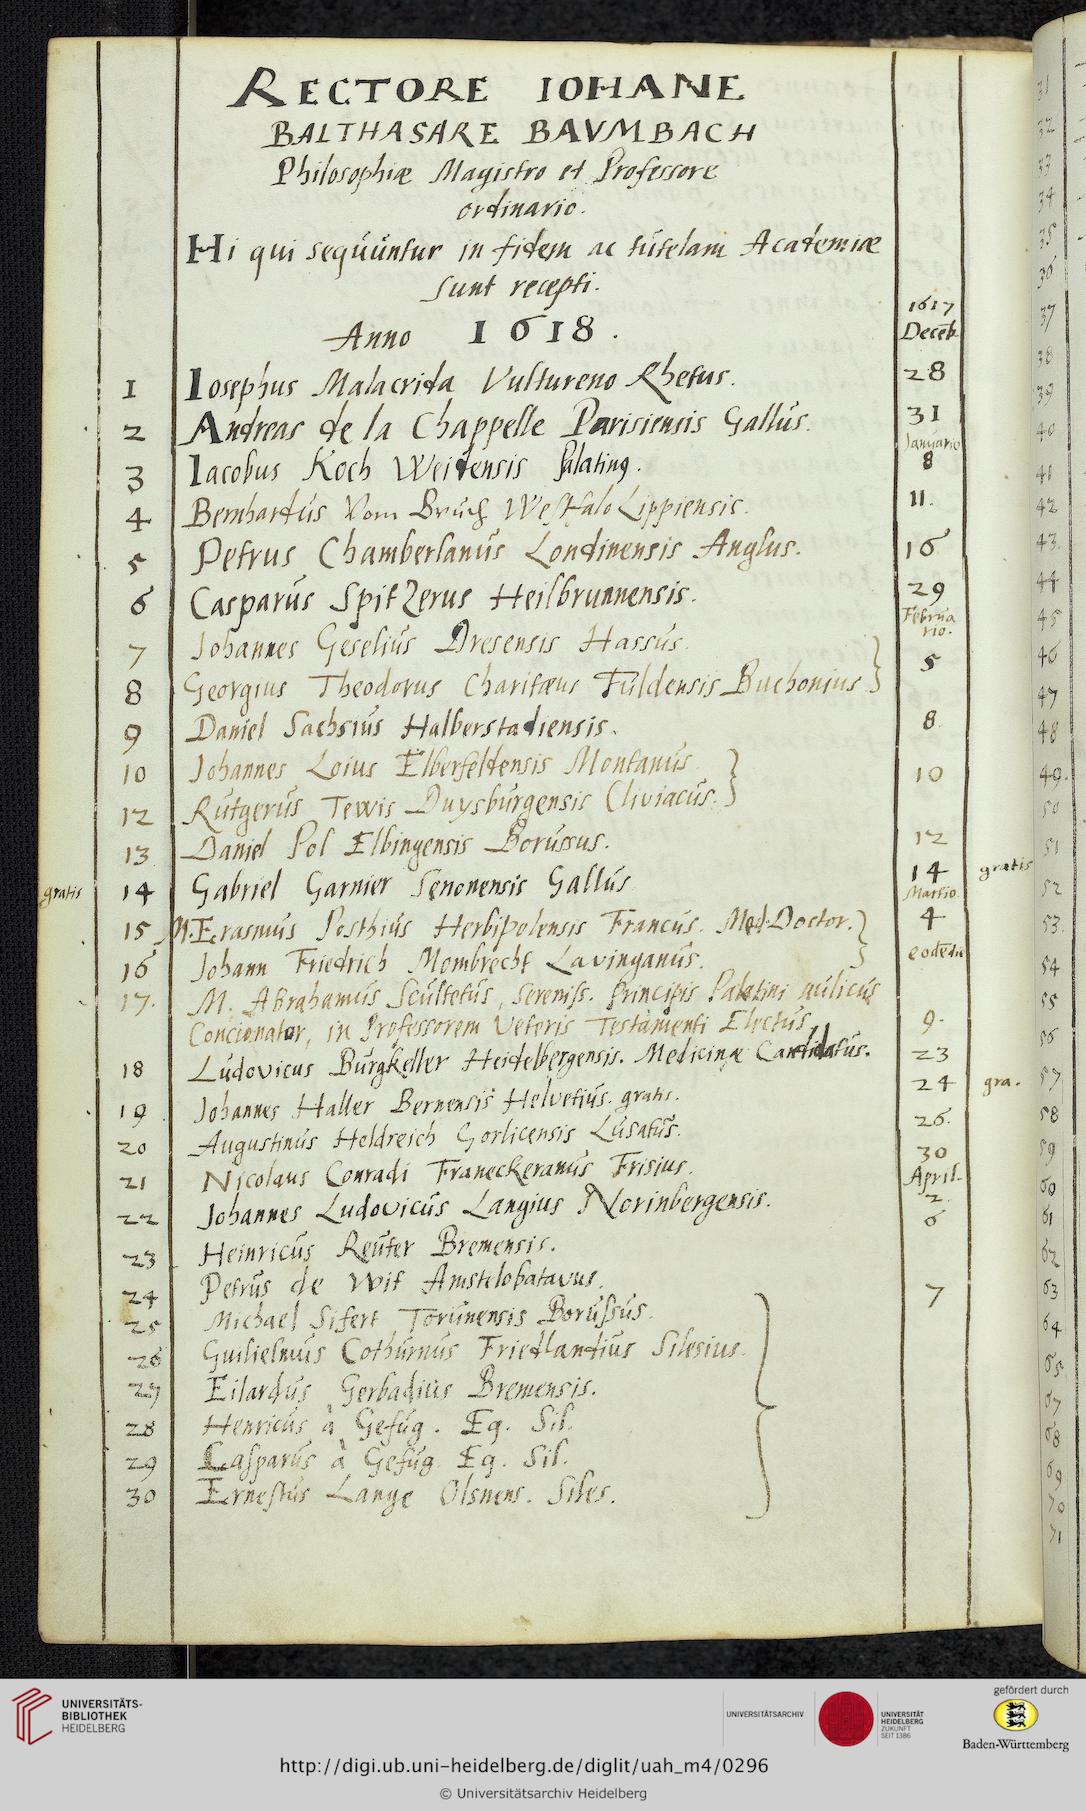 RECTORE IOHANE
BALTHASARE BAVMBACH
Philosophiæ Magistro et Professore
ordinario.
Hi qui sequuntur in fidem ac tutelam Academiæ
sunt recepti.
1617
Anno 1618. Deceb.
1 Iosephus Malacrida Vultureno Rhetus. 28
2 Andreas de la Chappelle Parisiensis Gallus. 31
Januario
3 Iacobus Koch Weidensis Palatinꝯ. 8
4 Bernhardus Vom Bruch Westfalo Lippiensis. 11.
5 Petrus Chamberlanus Londinensis Anglus. 16
6 Casparus Spitzerus Heilbrunnensis. 29
Februa
rio.
7 Johannes Geselius Dresensis Hassus.
5
8 Georgius Theodorus Charitæus Fuldensis Buchonius
9 Daniel Sachsius Halberstadiensis. 8.
10 Johannes Loius Elberfeldensis Montanus 10
12 Rutgerus Tewis Duysburgensis Cliviacus.
13 Daniel Pol Elbingensis Borussus. 12
gratis 14 Gabriel Garnier Senonensis Gallus 14 gratis
Martio.
15 M. Erasmus Posthius Herbipolensis Francus. Med. Doctor. 4
16 Johann Friedrich Mombrecht Lavinganus. eodē die
17. M. Abrahamus Scultetus, Sereniss. Principis Palatini aulicus
Concionator, in Professorem Veteris Testamenti Electus, 9.
18 Ludovicus Burgkeller Heidelbergensis. Medicinæ Candidatus. 23
19 Johannes Haller Bernensis Helvetius. gratis. 24 gra.
20 Augustinus Heldreich Gorlicensis Lusatus. 26.
21 Nicolaus Conradi Franeckeranus Frisius. 30
April.
22 Johannes Ludovicus Langius Norinbergensis. 2.
23 Heinricus Reuter Bremensis. 6
24 Petrus de Wit Amstelobatavus. 7
25 Michael Sifert Torunensis Borussus.
26 Guilielmus Cothurnus Friedlandius Silesius.
27 Eilardus Gerbadius Bremensis.
28 Henricus à Gefug. Eq. Sil.
29 Casparus à Gefug Eq. Sil.
30 Ernestus Lange Olsnens. Siles.
31
32
33
34
35
36
37
38
39
40
41
42
43
44
45
46
47
48
49.
50
51
52
53.
54
55
56
57
58
59
60
61
62
63
64
65
67
68
69
70
71
UNIVERSITÄTS-
BIBLIOTHEK
HEIDELBERG
UNIVERSITÄTSARCHIV
UNIVERSITÄT
HEIDELBERG
ZUKUNFT
SEIT 1386
gefördert durch
Baden-Württemberg
http://digi.ub.uni-heidelberg.de/diglit/uah_m4/0296
© Universitätsarchiv Heidelberg